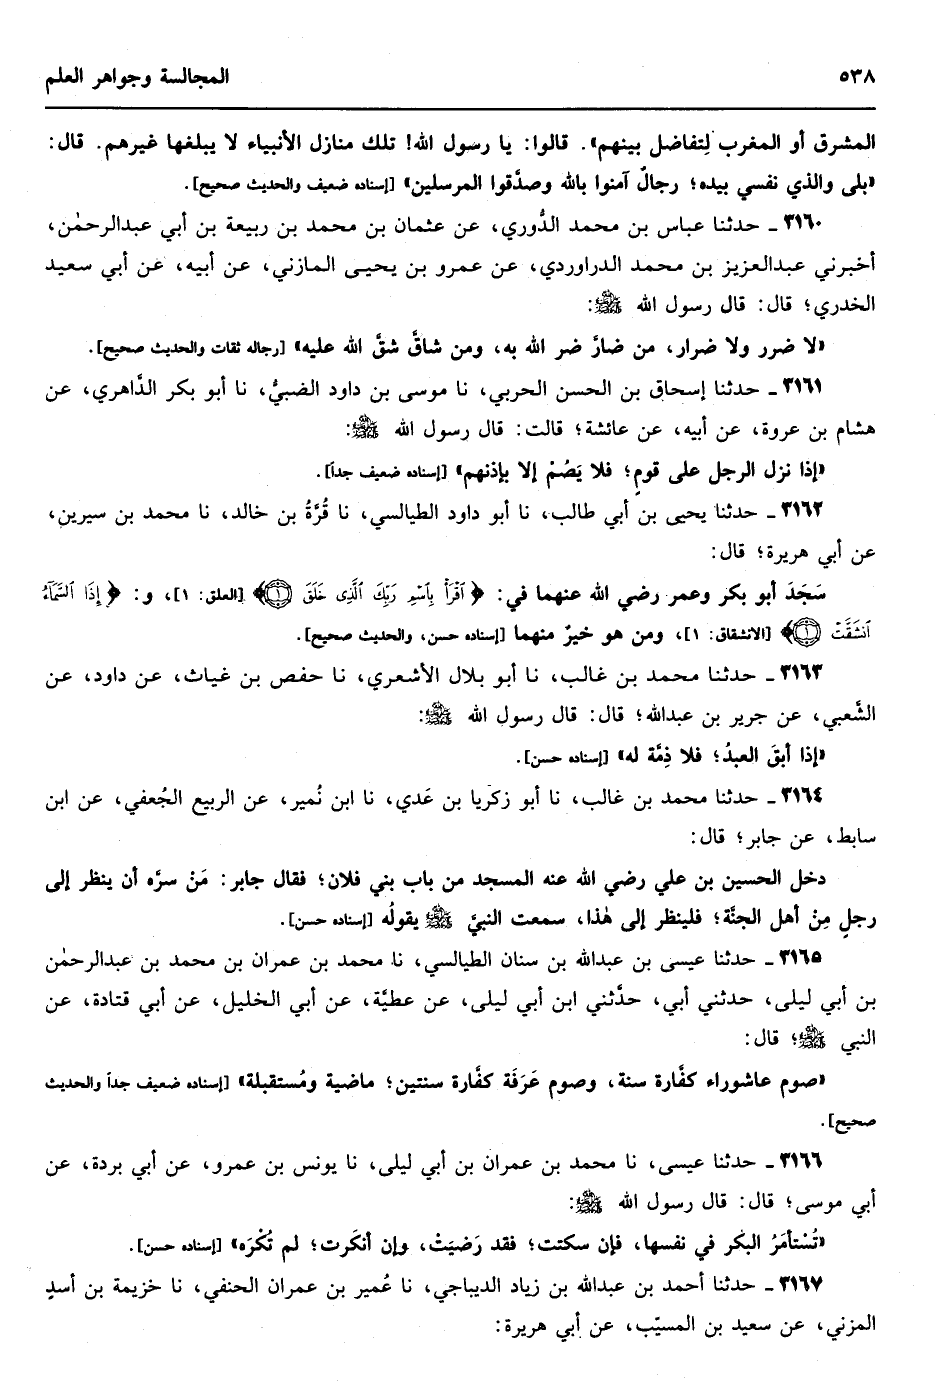 ٥٣٨ المجالسة وجواهر العلم
المشرق أو المغرب لِتفاضل بينهم». قالوا: يا رسول الله! تلك منازل الأنبياء لا يبلغها غيرهم. قال:
«بلى والذي نفسي بيده؛ رجالٌ آمنوا بالله وصدَّقوا المرسلين» [إسناده ضعيف والحديث صحيح].
٣١٦٠ ـ حدثنا عباس بن محمد الدُّوري، عن عثمان بن محمد بن ربيعة بن أبي عبدالرحمٰن،
أخبرني عبدالعزيز بن محمد الدراوردي، عن عمرو بن يحيى المازني، عن أبيه، عن أبي سعيد
الخدري؛ قال: قال رسول الله ﷺ:
«لا ضرر ولا ضرار، من ضارَّ ضر الله به، ومن شاقَّ شقَّ الله عليه» [رجاله ثقات والحديث صحيح].
٣١٦١ ـ حدثنا إسحاق بن الحسن الحربي، نا موسى بن داود الضبيُّ، نا أبو بكر الدَّاهري، عن
هشام بن عروة، عن أبيه، عن عائشة؛ قالت: قال رسول الله ﷺ:
«إذا نزل الرجل على قومٍ؛ فلا يَصُمْ إلا بإذنهم» [إسناده ضعيف جداً].
٣١٦٢ ـ حدثنا يحيى بن أبي طالب، نا أبو داود الطيالسي، نا قُرَّةُ بن خالد، نا محمد بن سيرين،
عن أبي هريرة؛ قال:
سَجَدَ أبو بكر وعمر رضي الله عنهما في: ﴿ ٱقْرَأْ بِٱسْمِ رَبِّكَ ٱلَّذِى خَلَقَ ۝١ ﴾ [العلق: ١]، و: ﴿ إِذَا ٱلسَّمَآءُ
ٱنشَقَّتْ ۝١ ﴾ [الانشقاق: ١]، ومن هو خيرٌ منهما [إسناده حسن، والحديث صحيح].
٣١٦٣ ـ حدثنا محمد بن غالب، نا أبو بلال الأشعري، نا حفص بن غياث، عن داود، عن
الشَّعبي، عن جرير بن عبدالله؛ قال: قال رسول الله ﷺ:
«إذا أبقَ العبدُ؛ فلا ذِمَّة له» [إسناده حسن].
٣١٦٤ ـ حدثنا محمد بن غالب، نا أبو زكريا بن عَدي، نا ابن نُمير، عن الربيع الجُعفي، عن ابن
سابط، عن جابر؛ قال:
دخل الحسين بن علي رضي الله عنه المسجد من باب بني فلان؛ فقال جابر: مَنْ سرَّه أن ينظر إلى
رجلٍ مِنْ أهل الجنَّة؛ فلينظر إلى هٰذا، سمعت النبيَّ ﷺ يقولُه [إسناده حسن].
٣١٦٥ ـ حدثنا عيسى بن عبدالله بن سنان الطيالسي، نا محمد بن عمران بن محمد بن عبدالرحمٰن
بن أبي ليلى، حدثني أبي، حدَّثني ابن أبي ليلى، عن عطيَّة، عن أبي الخليل، عن أبي قتادة، عن
النبي ﷺ؛ قال:
«صوم عاشوراء كفَّارة سنة، وصوم عَرَفَة كفَّارة سنتين؛ ماضية ومُستقبلة» [إسناده ضعيف جداً والحديث
صحيح].
٣١٦٦ ـ حدثنا عيسى، نا محمد بن عمران بن أبي ليلى، نا يونس بن عمرو، عن أبي بردة، عن
أبي موسى؛ قال: قال رسول الله ﷺ:
«تُسْتأمَرُ البكر في نفسها، فإن سكتت؛ فقد رَضيَتْ، وإن أنكَرت؛ لم تُكْرَه» [إسناده حسن].
٣١٦٧ ـ حدثنا أحمد بن عبدالله بن زياد الديباجي، نا عُمير بن عمران الحنفي، نا خزيمة بن أسدٍ
المزني، عن سعيد بن المسيّب، عن أبي هريرة: